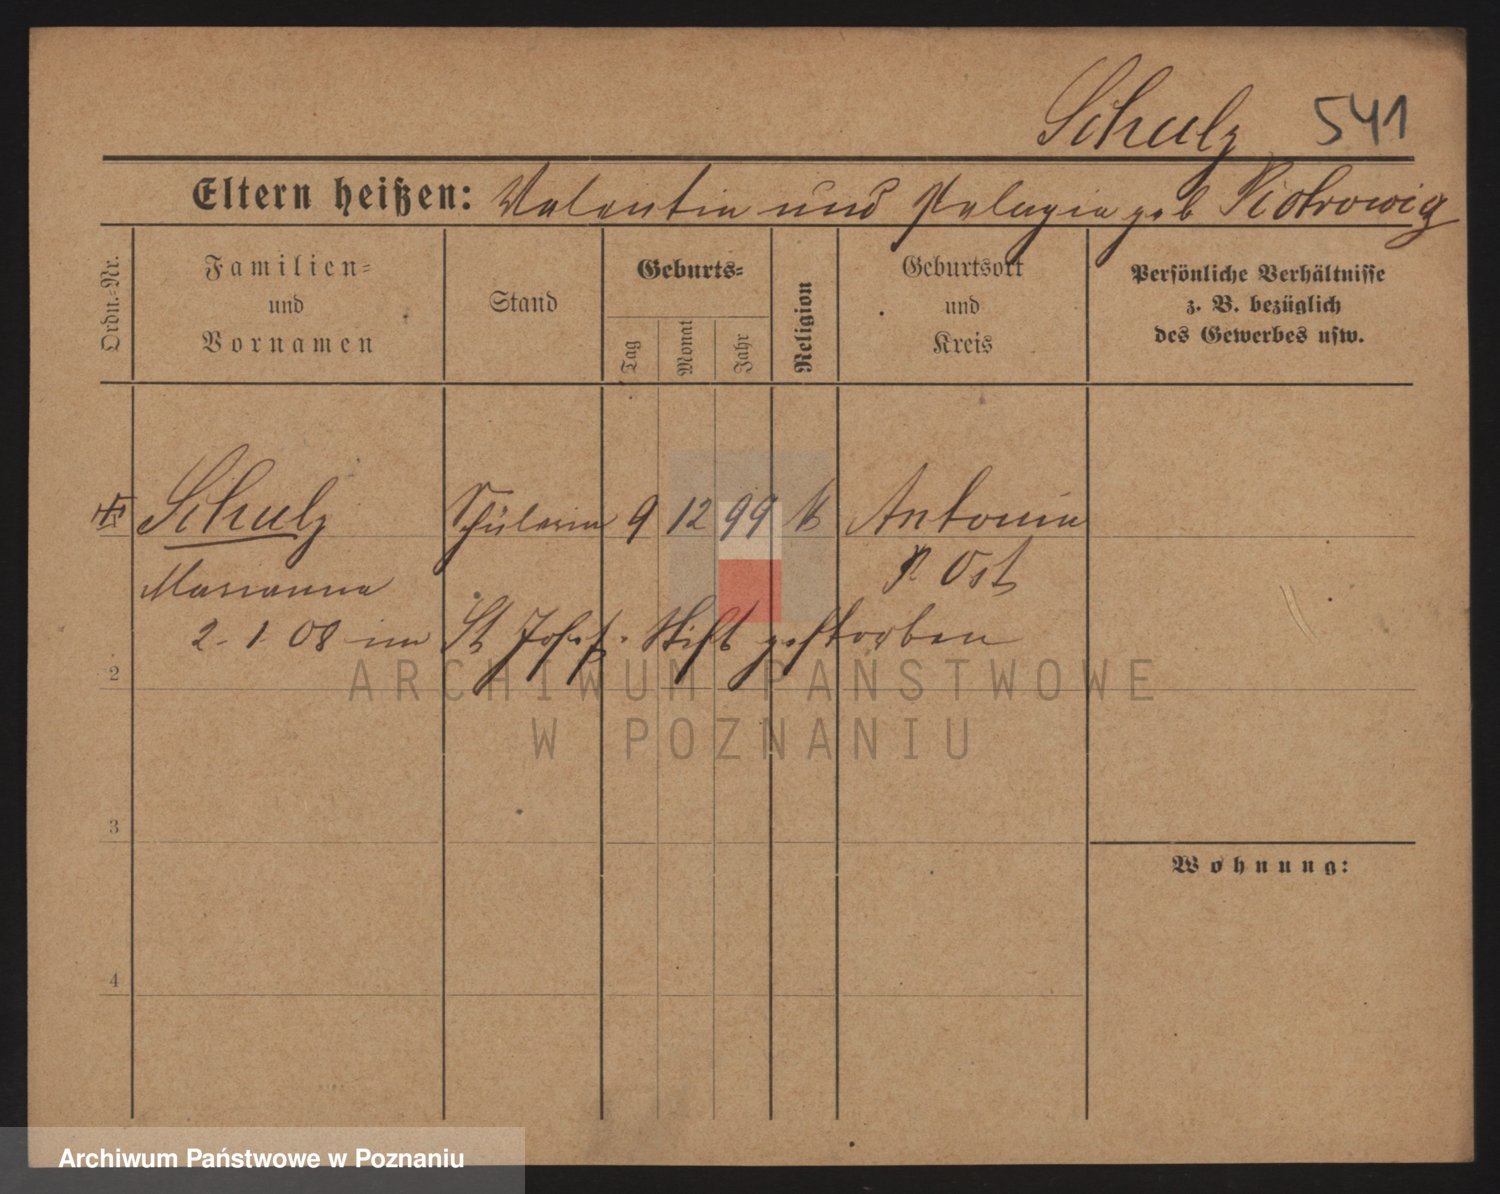 Schulz 541
Eltern heißen: Valentin und Pelagia geb Piotrowig
Ordn.=Nr.
Familien=
und
Vornamen
Stand
Geburts=
Tag
Monat
Jahr
Religion
Geburtsort
und
Kreis
Persönliche Verhältnisse
z. B. bezüglich
des Gewerbes usw.
Schulz Schülerin 9 12 99 k Antonin
Marianna P Ost
2. 1 08 im St Josef. Stift gestorben
2
3
4
Wohnung:
ARCHIWUM PAŃSTWOWE
W POZNANIU
Archiwum Państwowe w Poznaniu